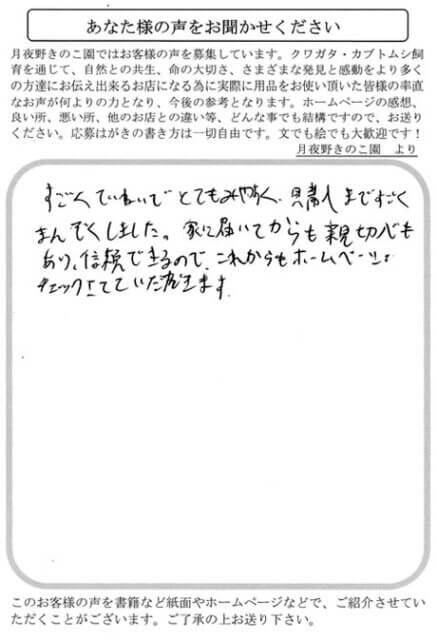 あなた様の声をお聞かせください
月夜野きのこ園ではお客様の声を募集しています。クワガタ・カブトムシ飼
育を通じて、自然との共生、命の大切さ、さまざまな発見と感動をより多く
の方達にお伝え出来るお店になる為に実際に用品をお使い頂いた皆様の率直
なお声が何よりの力となり、今後の参考となります。ホームページの感想、
良い所、悪い所、他のお店との違い等、どんな事でも結構ですので、お送り
ください。応募はがきの書き方は一切自由です。文でも絵でも大歓迎です！
月夜野きのこ園　より
すごくていねいで とてもみやすく、購入まですごく
まんぞくしました。家に届いてからも親切心も
あり、信頼できるので、これからもホームページを
チェックさせていただきます。
このお客様の声を書籍など紙面やホームページなどで、ご紹介させてい
ただくことがございます。ご了承の上お送り下さい。